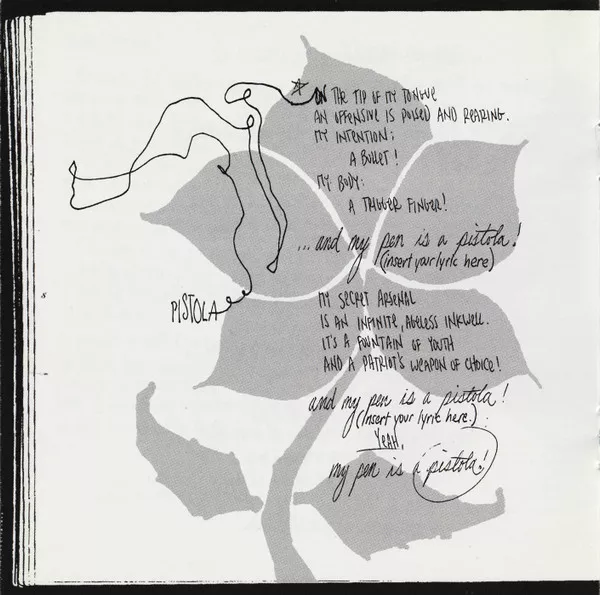 ON THE TIP OF MY TONGUE
AN OFFENSIVE IS POISED AND REARING.
MY INTENTION:
A BULLET!
MY BODY:
A TRIGGER FINGER!
...and my pen is a pistola!
(insert your lyric here)
PISTOLA
MY SECRET ARSENAL
IS AN INFINITE, AGELESS INKWELL.
IT'S A FOUNTAIN OF YOUTH
AND A PATRIOT'S WEAPON OF CHOICE!
and my pen is a pistola!
(Insert your lyric here.)
YEAH,
my pen is a pistola!